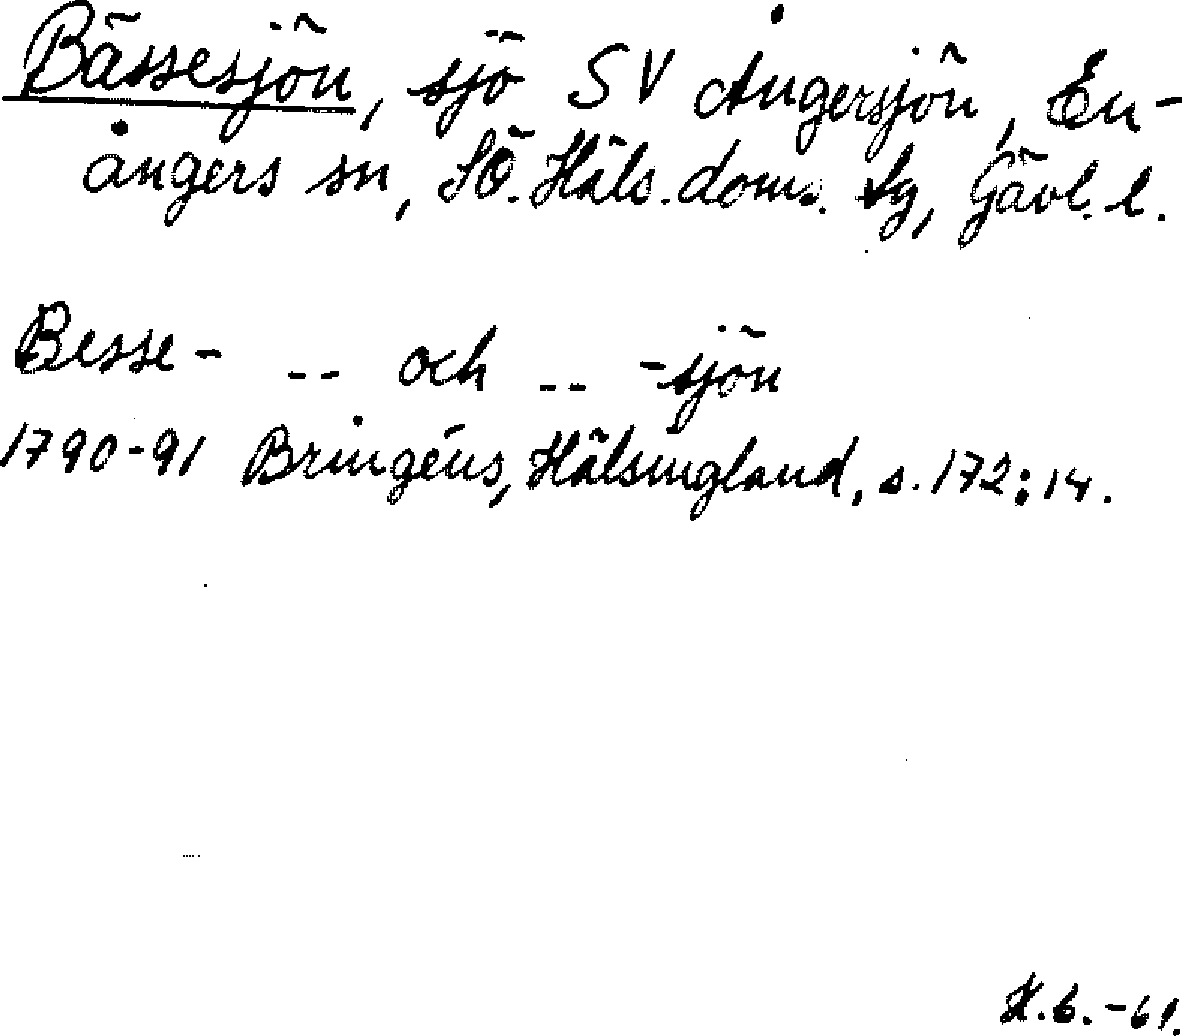 Bässesjön, sjö SV Ångersjön, En-
ångers sn, SÖ. Häls. doms. tg, Gävl. l.
Besse- -- och -- -sjön
1790-91 Bringéus, Hälsingland, s. 172:14.
H.b.-61.